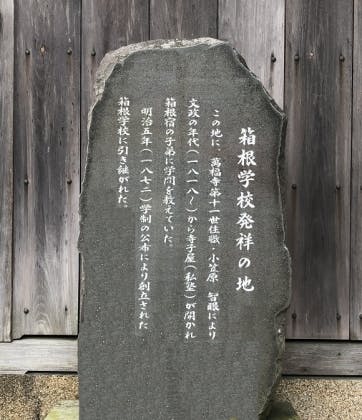 箱根学校発祥の地
この地に、萬福寺第十一世住職・小笠原 智眼により
文政の年代(一八一八〜)から寺子屋(私塾)が開かれ
箱根宿の子弟に学問を教えていた。
明治五年(一八七二)学制の公布により創立された
箱根学校に引き継がれた。